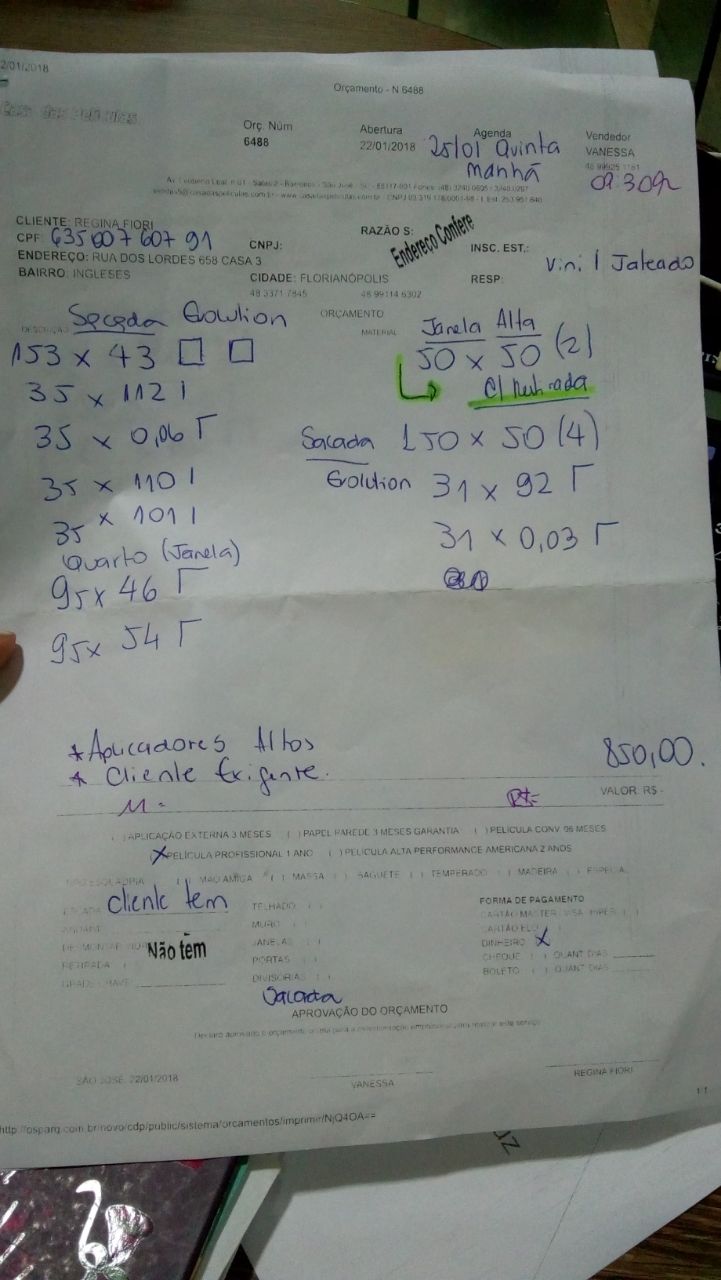 2/01/2018
Orçamento - N 6488
Casa das Películas
Orç. Núm
6488
Abertura
22/01/2018
Agenda
25/01 Quinta
Manhã
Vendedor
VANESSA
09:30hr
CLIENTE: REGINA FIORI
CPF: 635 007 607 91
CNPJ:
RAZÃO S:
Endereço Confere
INSC. EST.:
ENDEREÇO: RUA DOS LORDES 658 CASA 3
BAIRRO: INGLESES
CIDADE: FLORIANÓPOLIS
RESP:
Vinil Jateado
48 3371 7845
48 99114 6302
ORÇAMENTO
DESCRIÇÃO
MATERIAL
Sacada Evolution
153 x 43
35 x 112 |
35 x 0,06 Γ
35 x 110 |
35 x 101 |
Quarto (Janela)
95 x 46 Γ
95 x 54 Γ
Janela Alta
50 x 50 (2)
C/ Retirada
Sacada 150 x 50 (4)
Evolution 31 x 92 Γ
31 x 0,03 Γ
* Aplicadores Altos
* Cliente Exigente.
850,00.
M=
VALOR: R$ -
( ) APLICAÇÃO EXTERNA 3 MESES ( ) PAPEL PAREDE 3 MESES GARANTIA ( ) PELÍCULA CONV. 06 MESES
(X PELÍCULA PROFISSIONAL 1 ANO ( ) PELÍCULA ALTA PERFORMANCE AMERICANA 2 ANOS
MASSA ( ) BAGUETE ( ) TEMPERADO ( ) MADEIRA ( ) ESPECIAL
cliente tem
TELHADO ( )
MURO ( )
JANELAS ( )
PORTAS ( )
DIVISÓRIAS ( )
Sacada
Não tem
RETIRADA
FORMA DE PAGAMENTO
DINHEIRO X
CHEQUE ( ) QUANT DIAS
BOLETO ( ) QUANT DIAS
APROVAÇÃO DO ORÇAMENTO
SÃO JOSÉ, 22/01/2018
VANESSA
REGINA FIORI
1/1
http://osparq.com.br/novo/cdp/public/sistema/orcamentos/imprimir/NjQ4OA==